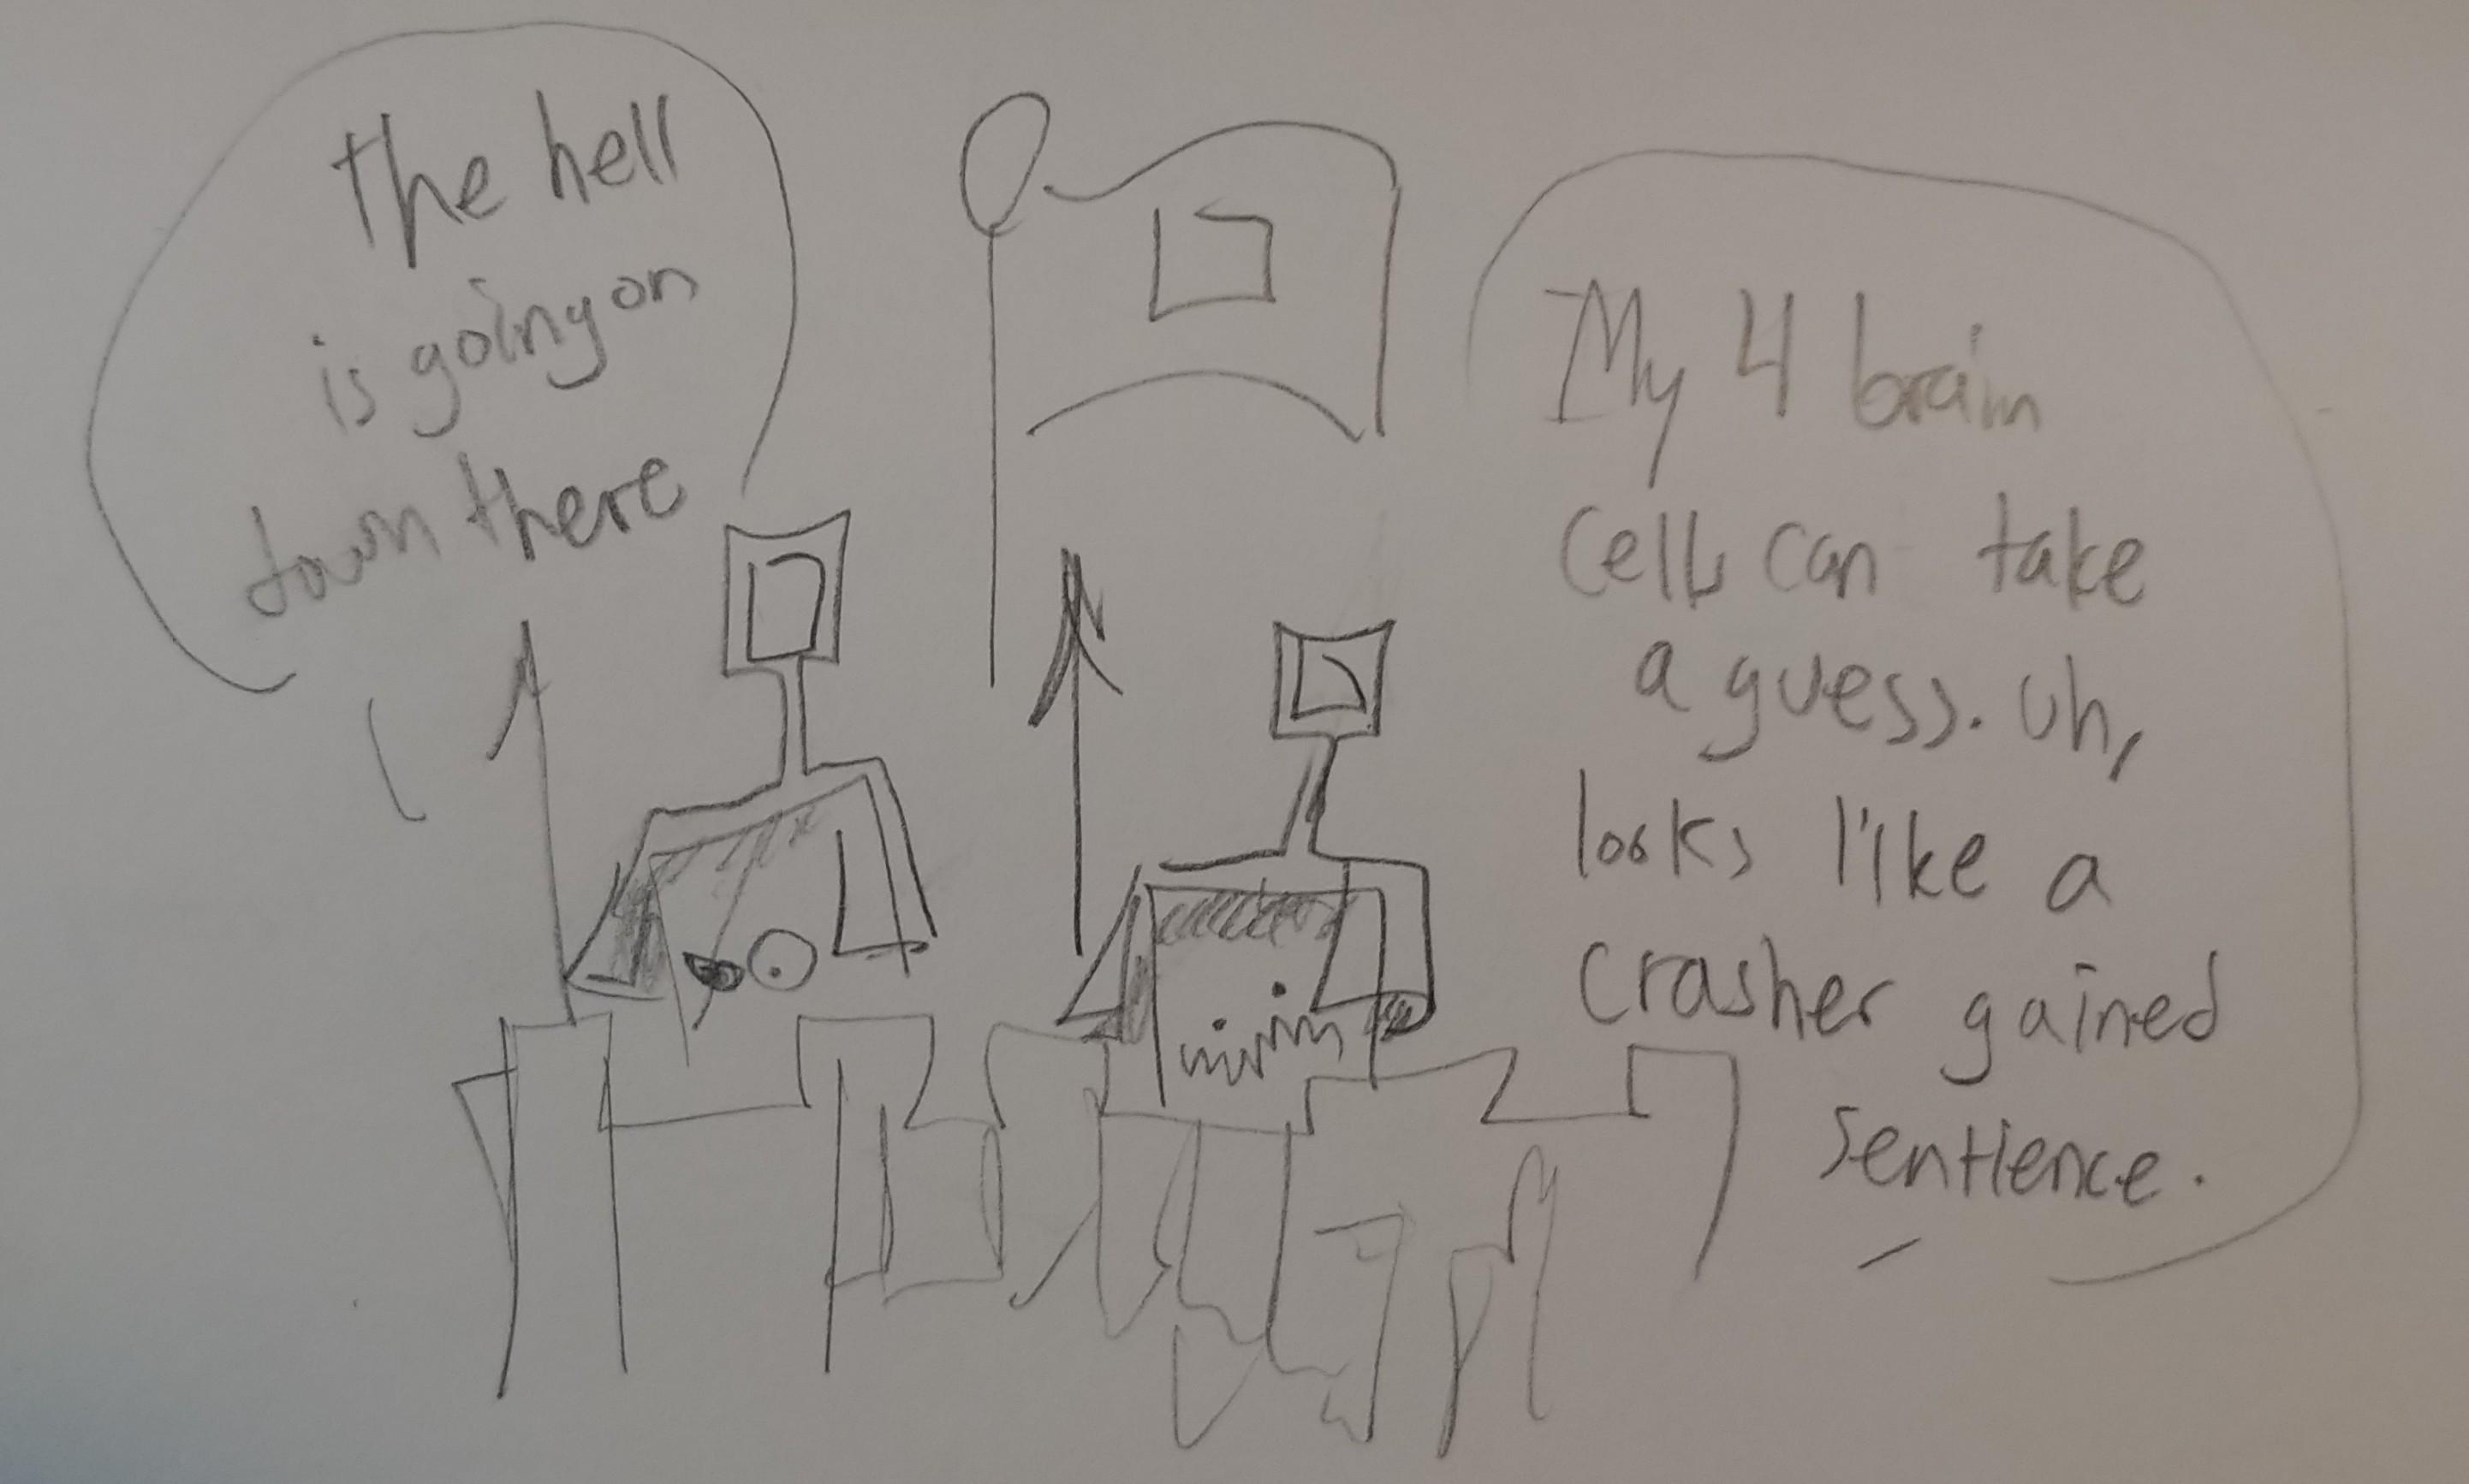 the hell
is going on
down there
My 4 brain
cells can take
a guess. uh,
looks like a
crasher gained
sentience.